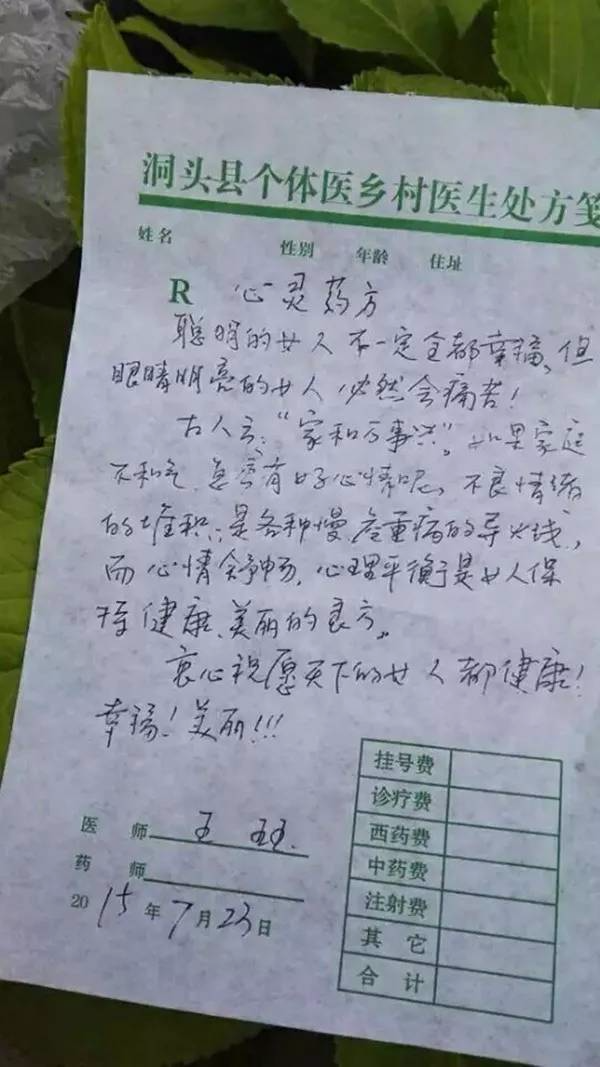 洞头县个体医乡村医生处方笺
姓名 性别 年龄 住址
R 心灵药方
聪明的女人不一定全都幸福、但
眼睛明亮的女人必然会痛苦！
古人云：“家和万事兴”。如果家庭
不和气，怎会有好心情呢、不良情绪
的堆积：是各种慢、危重病的导火线，
而心情舒畅，心理平衡于是女人保
持健康、美丽的良方。
衷心祝愿天下的女人都健康！
幸福！美丽！！！
挂号费
诊疗费
西药费
中药费
注射费
其它
合计
医师 王
药师
2015年7月23日